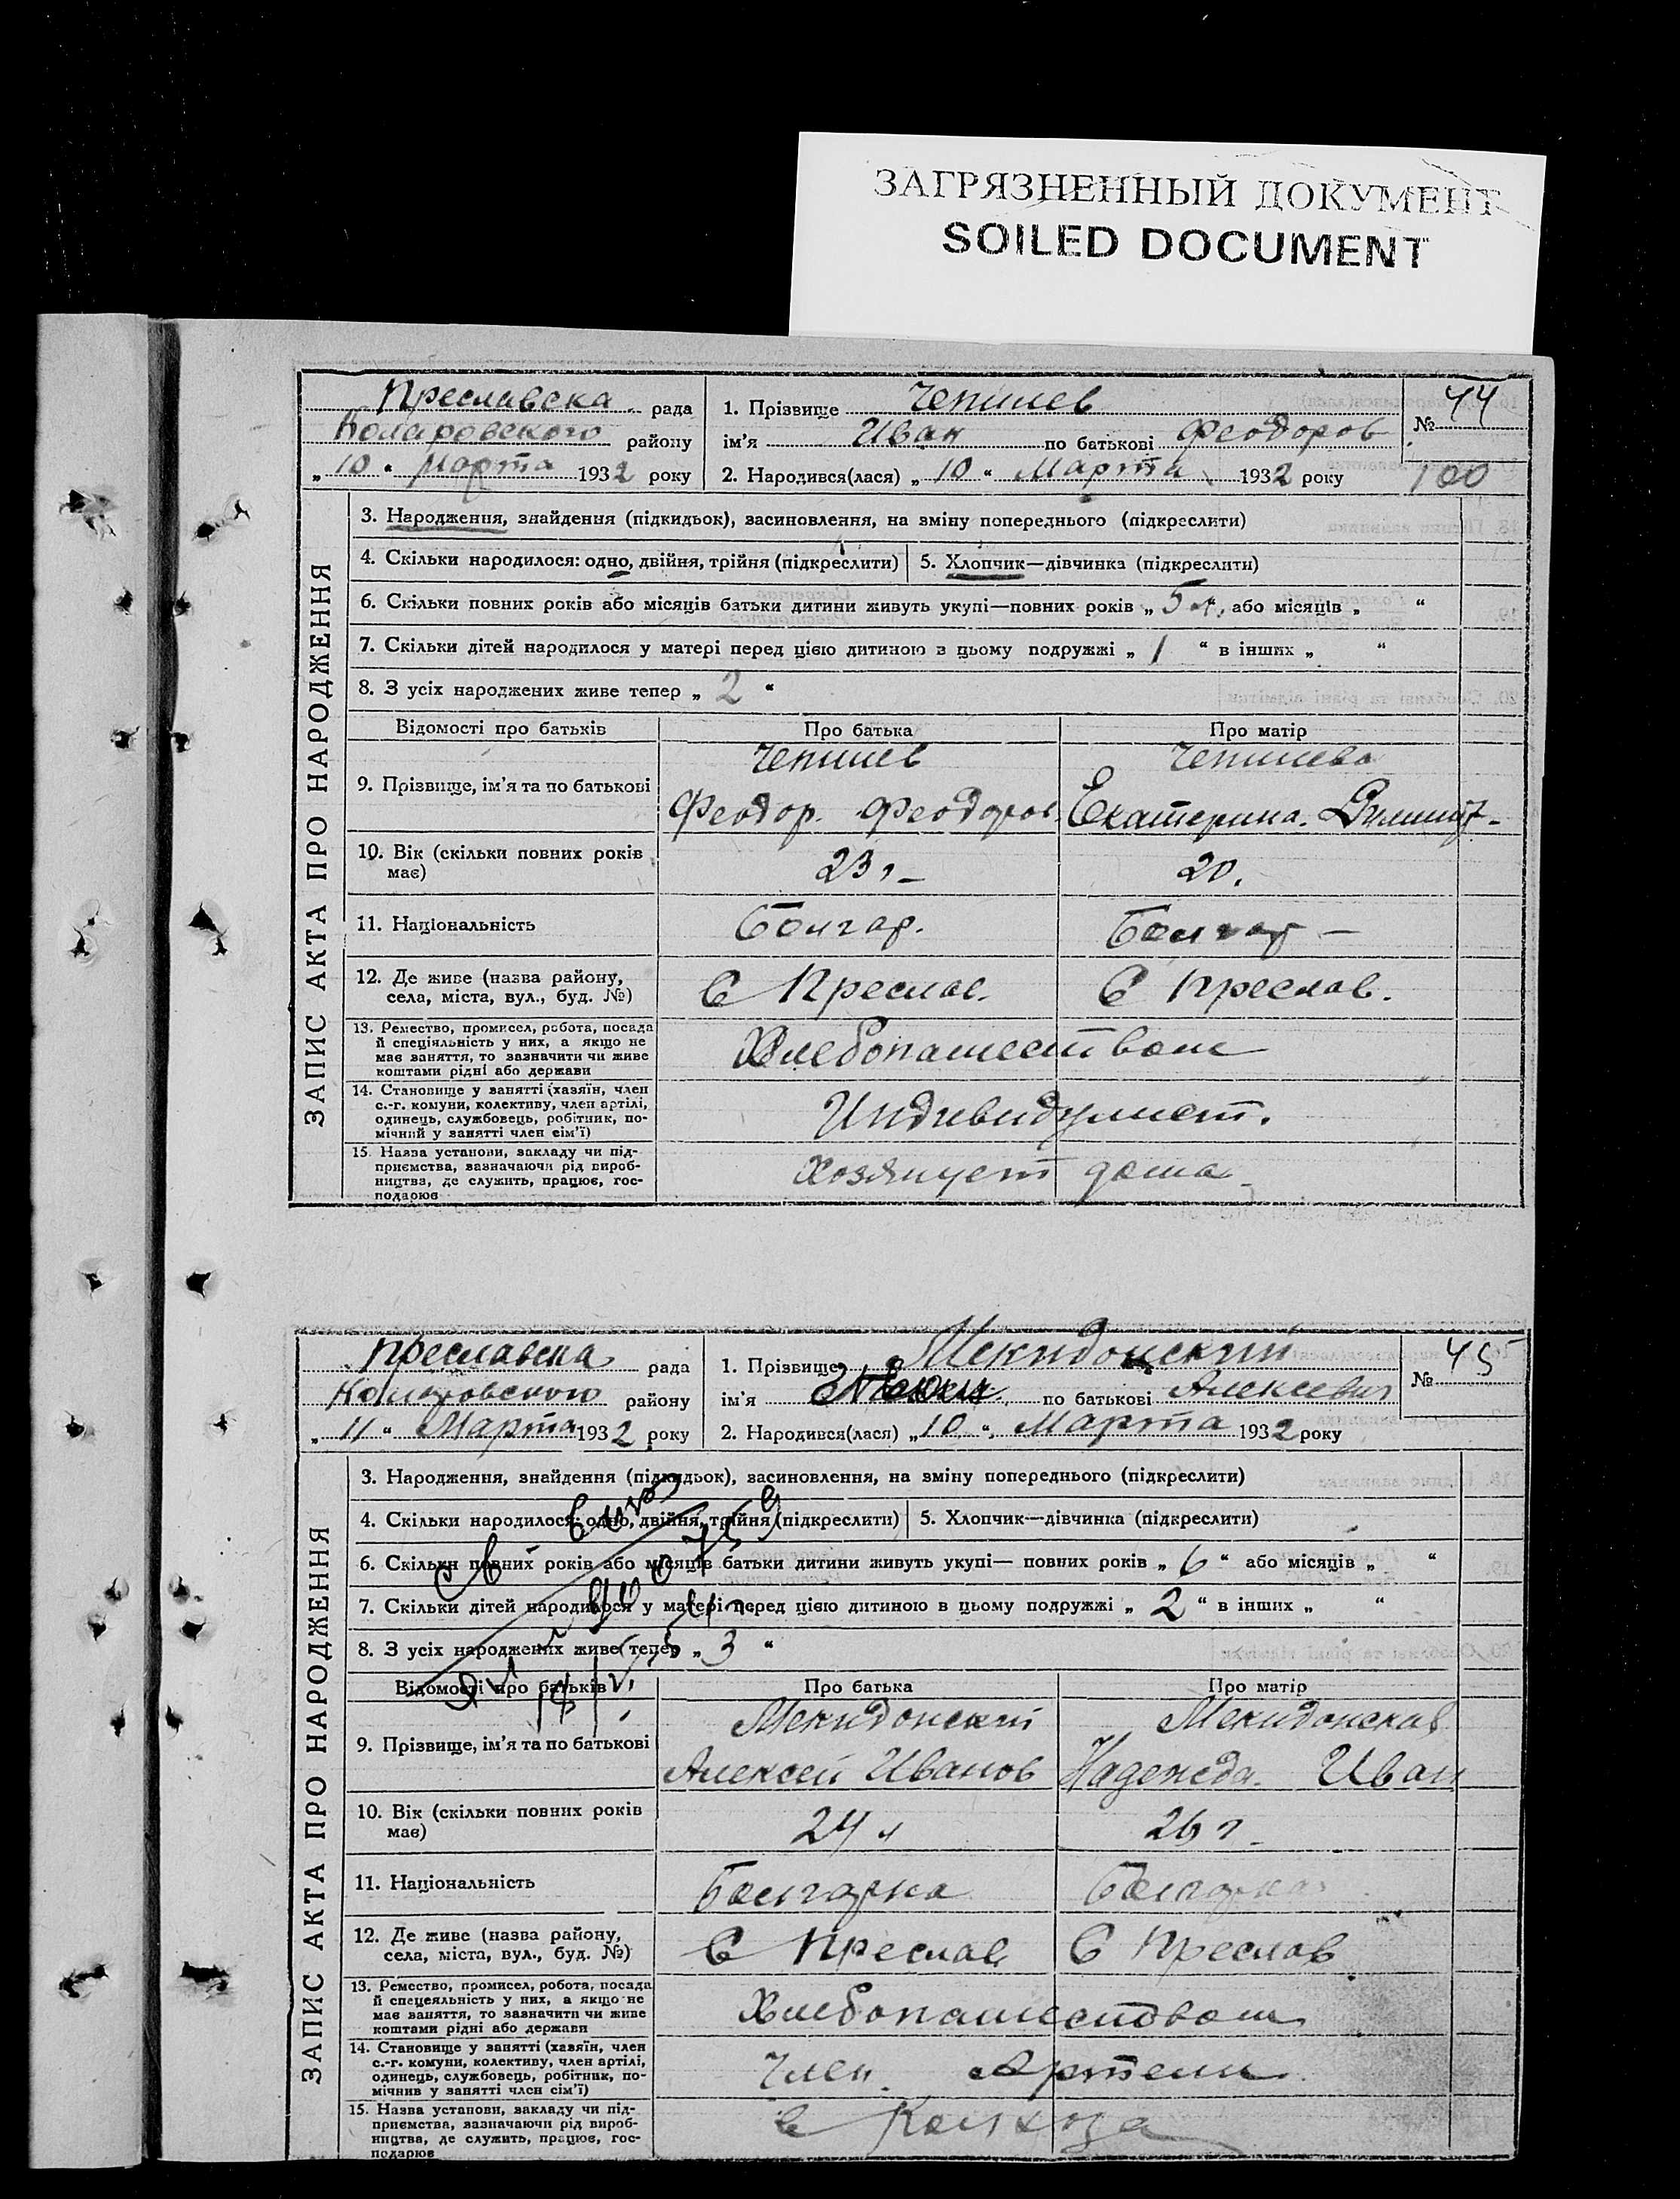 ЗАГРЯЗНЕННЫЙ ДОКУМЕНТ
SOILED DOCUMENT
Преславска рада
Коларовского району
„ 10 “ Марта 1932 року
1. Прізвище Чепишев
ім’я Иван по батькові Феодоров
2. Народився(лася) „ 10 “ Марта 1932 року
№ 44
100
ЗАПИС АКТА ПРО НАРОДЖЕННЯ
3. Народження, знайдення (підкидьок), засиновлення, на зміну попереднього (підкреслити)
4. Скільки народилося: одно, двійня, трійня (підкреслити) 5. Хлопчик—дівчинка (підкреслити)
6. Скільки повних років або місяців батьки дитини живуть укупі—повних років „ 5 або місяців „ “
7. Скільки дітей народилося у матері перед цією дитиною в цьому подружжі „ 1 “ в інших „ “
8. З усіх народжених живе тепер „ 2 “
Відомості про батьків Про батька Про матір
9. Прізвище, ім’я та по батькові
Чепишев Чепишева
Феодор. Феодоров. Екатерина.
10. Вік (скільки повних років має)
23 20.
11. Національність
Болгар. Болгар —
12. Де живе (назва району, села, міста, вул., буд. №)
С Преслав. С Преслав.
13. Ремество, промисел, робота, посада
й спеціяльність у них, а якщо не
має заняття, то зазначити чи живе
коштами рідні або держави
Хлебопашеством
14. Становище у занятті (хазяїн, член
с.-г. комуни, колективу, член артілі,
одинець, службовець, робітник, по-
мічний у занятті член сім’ї)
Индивидулист.
15. Назва установи, закладу чи під-
приємства, зазначаючи рід вироб-
ництва, де служить, працює, гос-
подарює
Хозяинует дома
Преславска рада
Коларовского району
„ 11 “ Марта 1932 року
1. Прізвище Мекидонский
ім’я по батькові Алексевич
2. Народився(лася) „ 10 “ Марта 1932 року
№ 45
ЗАПИС АКТА ПРО НАРОДЖЕННЯ
3. Народження, знайдення (підкидьок), засиновлення, на зміну попереднього (підкреслити)
4. Скільки народилося: одно, двійня, трійня (підкреслити) 5. Хлопчик—дівчинка (підкреслити)
6. Скільки повних років або місяців батьки дитини живуть укупі— повних років „ 6 “ або місяців „ “
7. Скільки дітей народилося у матері перед цією дитиною в цьому подружжі „ 2 “ в інших „ “
8. З усіх народжених живе тепер „ 3 “
Відомості про батьків Про батька Про матір
9. Прізвище, ім’я та по батькові
Мекидонский Мекидонская
Алексей Иванов Надежда. Иван
10. Вік (скільки повних років має)
24 26 г.
11. Національність
Болгарка Болгарка
12. Де живе (назва району, села, міста, вул., буд. №)
С Преслав С Преслав
13. Ремество, промисел, робота, посада
й спецеяльність у них, а якщо не
має заняття, то зазначити чи живе
коштами рідні або держави
Хлебопашеством
14. Становище у занятті (хазяїн, член
с.-г. комуни, колективу, член артілі,
одинець, службовець, робітник, по-
мічнив у занятті член сім’ї)
Член. Артели.
15. Назва установи, закладу чи під-
приємства, зазначаючи рід вироб-
ництва, де служить, працює, гос-
подарює
в Колхоза